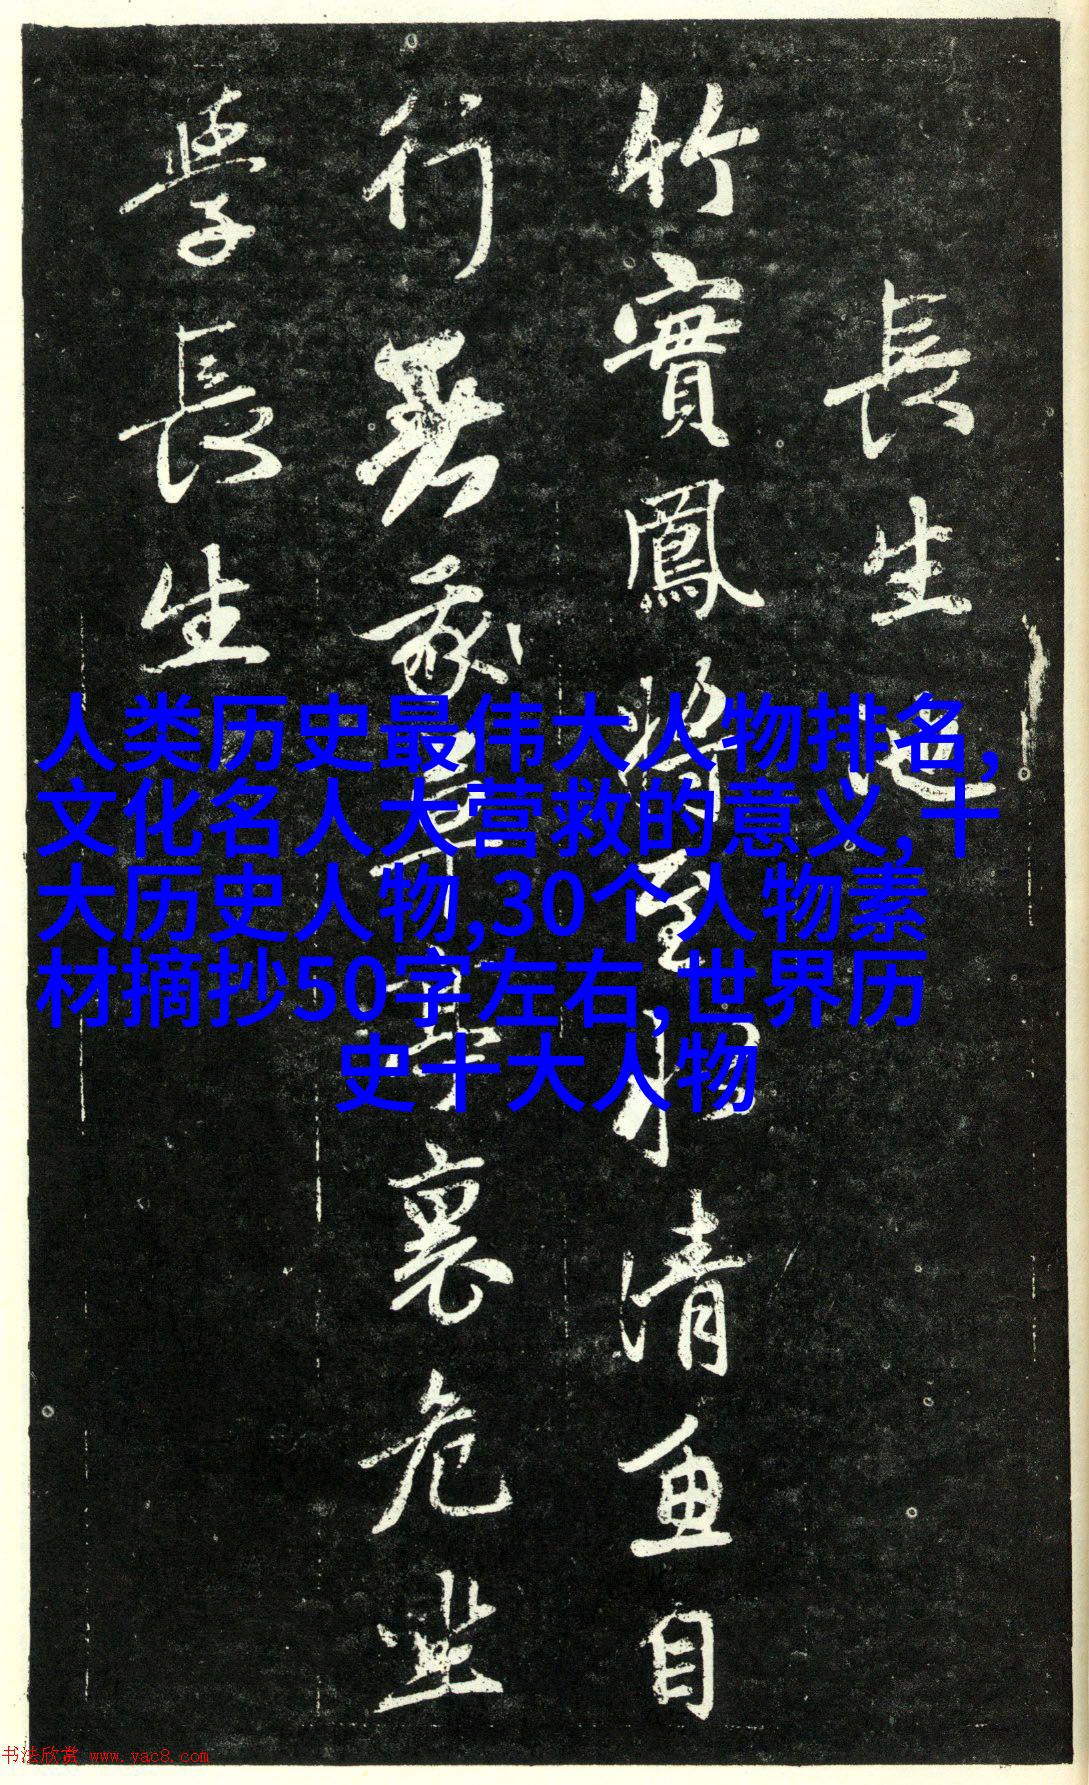 長生池
竹實鳳將至清魚自
行裏危坐
學長生
人类历史最伟大人物排名,
文化名人大营救的意义,十
大历史人物,30个人物素
材摘抄50字左右,世界历
史十大人物
书法欣赏 www.yac8.com